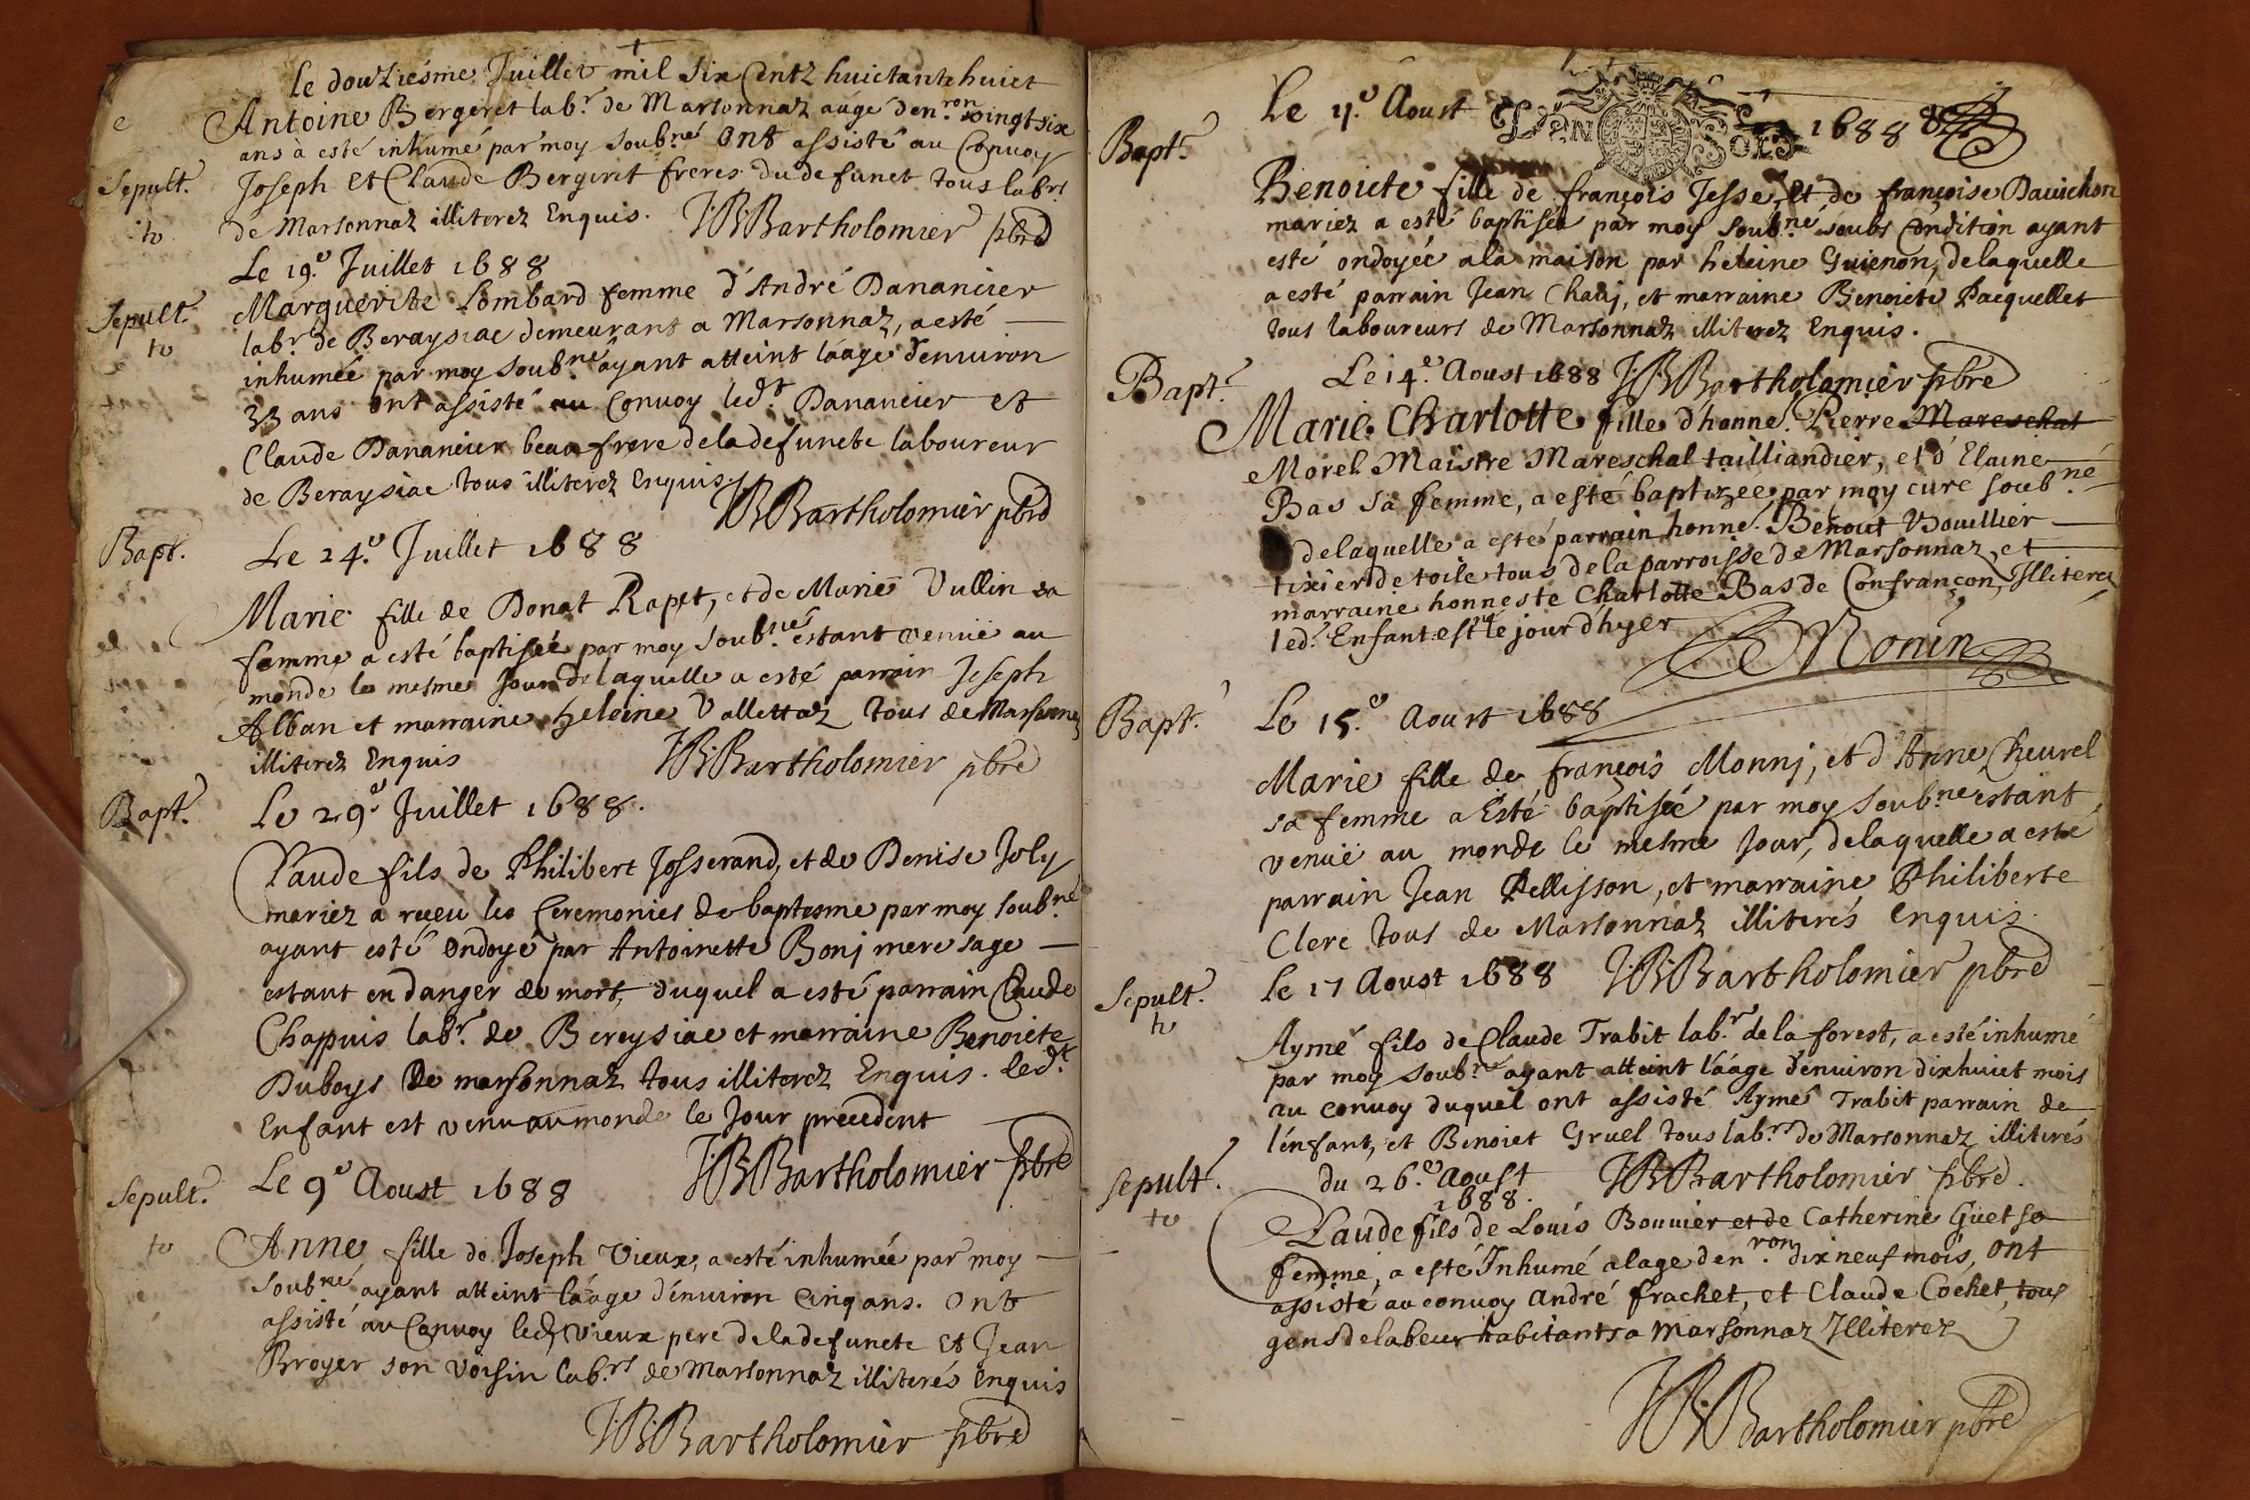 le douziesme Juillet mil six Centz huictantehuict
Antoine Bergeret labr. de Marsonnaz augé denron. vingt six
ans à esté inhumé par moy soubné. ont assisté au Convoy
Sepult. Joseph et Claude Bergeret freres du defunct tous labrs.
to de Marsonnaz illiterez Enquis. JB Bartholomier pbre
Le 19e. Juillet 1688
Sepult. Marguerite Lombard femme d'André Dananeier
to labr. de Beraysiac demeurant a Marsonnaz, a esté
inhumée par moy soubné. ayant atteint láage denuiron
33 ans ont assisté au Convoy ledt. Dananeier et
Claude Dananeier beaufrere de la defuncte laboureur
de Beraysiac tous illiterez Enquis JB Bartholomier pbre
Bapt. Le 24e. Juillet 1688
Marie fille de Donat Rapet, et de Marie Vullin sa
femme a esté baptisée par moy soubné. estant venuë au
monde le mesme jour de laquelle a esté parrain Joseph
Alban et marraine heleine Vallettaz tous de Marsonnaz
illiterez Enquis JB Bartholomier pbre
Bapt. Le 29e. Juillet 1688.
Claude fils de Philibert Josserand, et de Denise Joly
mariez a receu les Ceremonies de baptesme par moy soubné.
ayant esté ondoyé par Antoinette Bonj mere sage
estant en danger de mort, duquel a esté parrain Claude
Chapuis labr. de Bereysiac et marraine Benoiete
Duboys de marsonnaz tous illiterez Enquis. ledt.
Enfant est venu au monde le Jour precedent
JB Bartholomier pbre
Sepult. Le 9e Aoust 1688
to Anne fille de Joseph Vieux, a esté inhumée par moy
soubné ayant atteint láage d'énuiron Cinq ans. ont
assisté au Convoy led. Vieux pere de la defuncte Et Jean
Broyer son voisin labrs. de Marsonnaz illiterés Enquis
JB Bartholomier pbre
Le 11e. Aoust 1688
GEN SOLS
Bapt.
Benoiete fille de françois Jesse, et de françoise Dauichon
mariez a esté baptisée par moy soubné soubs Condition ayant
esté ondoyée a la maison par heleine Guienon, de laquelle
a esté parrain Jean Chanj, et marraine Benoiete Pacquellet
tous laboureurs de Marsonnaz illiterez Enquis.
Bapt. Le 14e. Aoust 1688 JB Bartholomier pbre
Marie Charlotte fille d'honne. Pierre Mareschal
Morel Maistre Mareschal tailliandier, et d'Elaine
Bas sa femme, a esté baptizee par moy cure soubné.
de laquelle a esté parrain honne. Benoit Vouillier
tixier de toile tous de la parroisse de Marsonnaz, et
marraine honneste Charlotte Bas de Confrançon, Illiterez
led. Enfant est né le jour d'hyer Nonin
Bapt. Le 15e. Aoust 1688
Marie fille de françois Monnj, et d'Anne Cheurel
sa femme a Esté baptisée par moy soubné estant
venuë au monde le mesme Jour, de laquelle a esté
parrain Jean Pellisson, et marraine Philiberte
Clerc tous de Marsonnaz illiterés Enquis.
Sepult. le 17 Aoust 1688 JB Bartholomier pbre
to
Aymé fils de Claude Trabit labr. de la forest, a esté inhumé
par moy soubné ayant atteint láage d'énuiron dixhuict mois
au convoy duquel ont assisté Aymé Trabit parrain de
l'énfant, et Benoiet Gruel tous labrs. de Marsonnaz illiterés
Sepult. du 26e. Aoust JB Bartholomier pbre.
to 1688.
Claude fils de Louis Bouuier et de Catherine Guet sa
femme, a esté Inhumé a lage denron. dix neuf mois, ont
assisté au convoy André frachet, et Claude Cochet, tous
gens de labeur habitants a Marsonnaz Illiterez
JB Bartholomier pbre